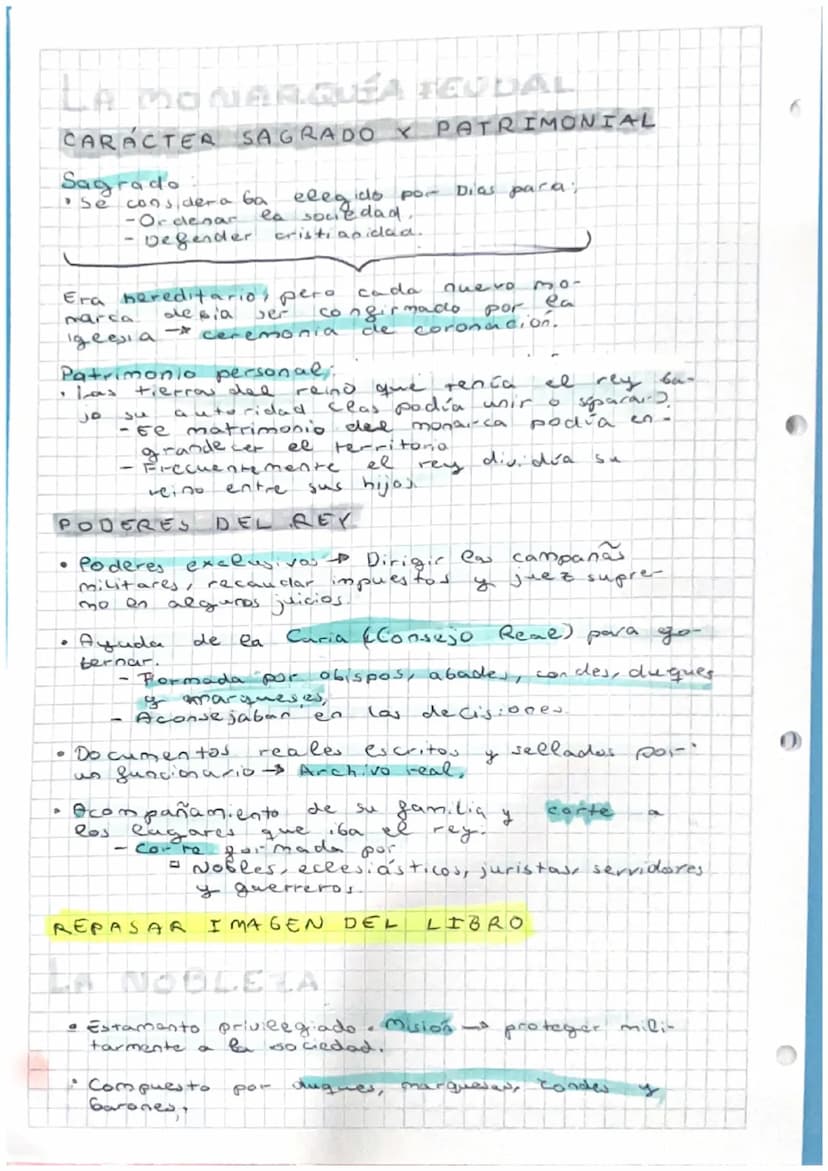 LA MONARQUÍA FEUDAL
CARÁCTER SAGRADO Y PATRIMONIAL
Sagrado:
• Se considera ba elegido por Dios para:
- Ordenar la sociedad.
- Defender cristianidad.
Era hereditario, pero cada nuevo mo-
narca debía ser confirmado por la
iglesia → ceremonia de coronación.
Patrimonio personal:
• Las tierras del reino que tenía el rey ba-
jo su autoridad (las podía unir o separar).
- El matrimonio del monarca podía en-
grandecer el territorio
- Frecuentemente el rey dividía su
reino entre sus hijos.
PODERES DEL REY
• Poderes exclusivos → Dirigir las campañas
militares, recaudar impuestos y juez supre-
mo en algunos juicios.
• Ayuda de la Curia (Consejo Real) para go-
bernar.
- Formada por obispos, abades, condes, duques
y marqueses,
- Aconsejaban en las decisiones.
• Documentos reales escritos y sellados por
un funcionario → Archivo real.
• Acompañamiento de su familia y corte a
los lugares que iba el rey.
- Corte formada por
Nobles, eclesiásticos, juristas, servidores
y guerreros.
REPASAR IMAGEN DEL LIBRO
LA NOBLEZA
• Estamento privilegiado. Misión → proteger mili-
tarmente a la sociedad.
• Compuesto por duques, marqueses, condes y
barones,